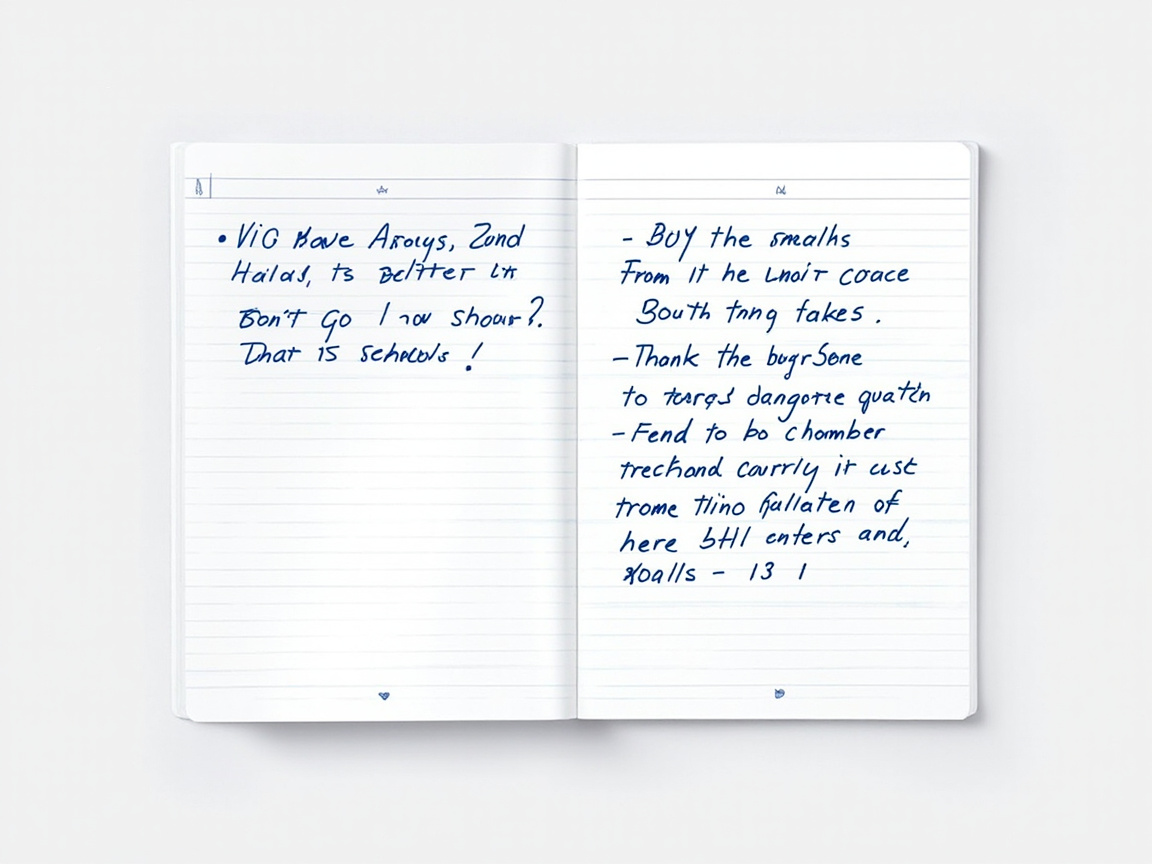 • Vio Have Aroys, Zund
Halad, ts in
Don't Go I now shour?.
That is schools!
- Buy the smalhs
From it he Lnoir coace
Bouth tnng fakes.
- Thank the bugrSone
to dangorre quatin
- Fend to bo chomber
trechond courrly ir cust
trome Tlino fullaten of
here bHl enters and,
- 13 1